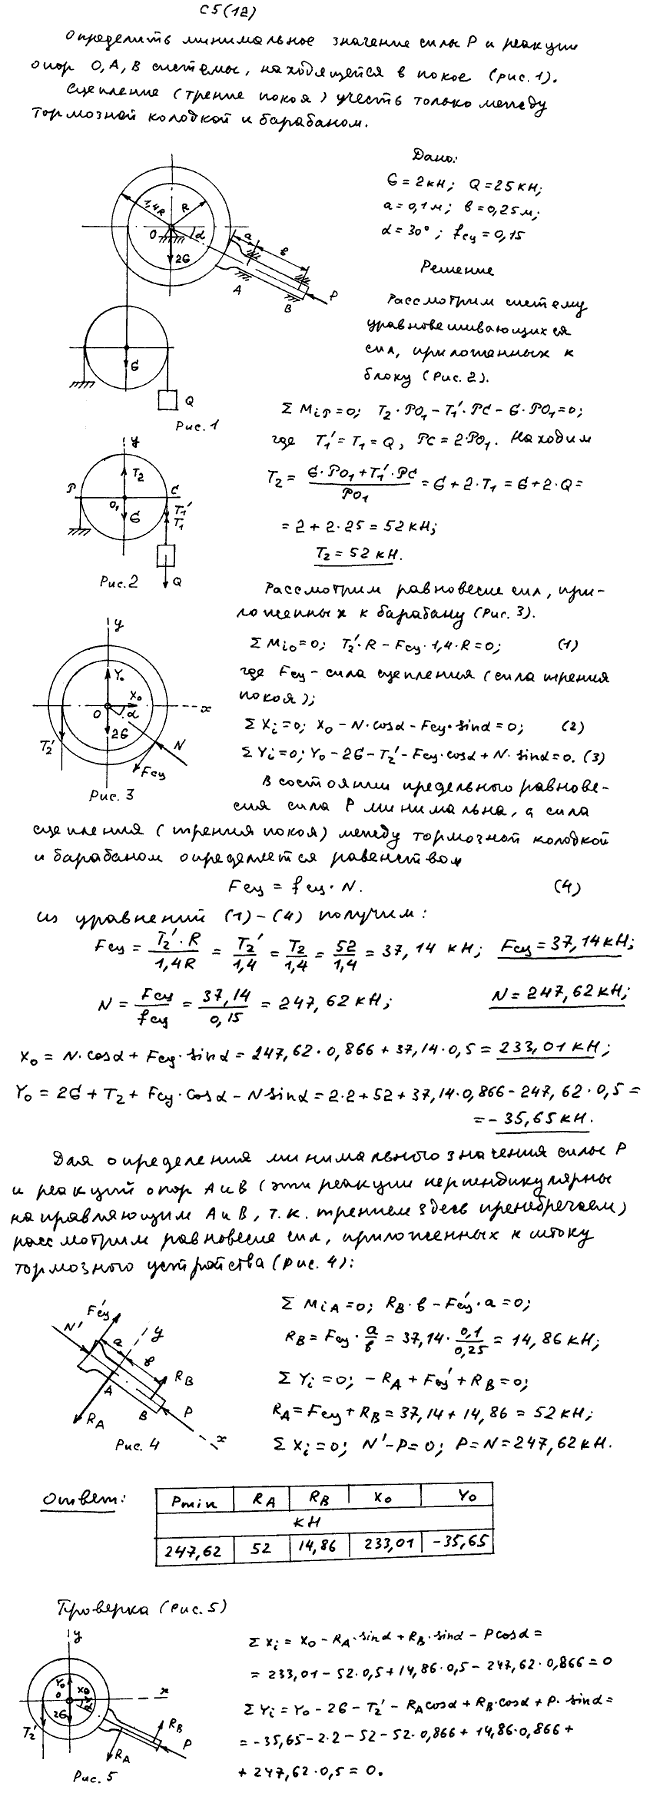 С5(12)
Определить минимальное значение силы P и реакции
опор O, A, B системы, находящейся в покое (рис. 1).
Сцепление (трение покоя) учесть только между
тормозной колодкой и барабаном.
Дано:
G = 2 кН; Q = 25 кН;
a = 0,1 м; в = 0,25 м;
α = 30°; fсц = 0,15
Решение
1,4R R O α 2G a в A B P
G Q
Рис. 1
Рассмотрим систему
уравновешивающихся
сил, приложенных к
блоку (Рис. 2).
Σ Miр = 0; T2 · PO1 – T1' · PC – G · PO1 = 0;
где T1' = T1 = Q, PC = 2·PO1. Находим
T2 = (G · PO1 + T1' · PC) / PO1 = G + 2·T1 = G + 2·Q =
= 2 + 2·25 = 52 кН;
T2 = 52 кН.
y T2 P O1 C G T1' T1 Q
Рис. 2
Рассмотрим равновесие сил, при-
ложенных к барабану (Рис. 3).
Σ Mio = 0; T2' · R – Fсц · 1,4 · R = 0; (1)
где Fсц – сила сцепления (сила трения
покоя);
Σ Xi = 0; X0 – N · cosα – Fсц · sinα = 0; (2)
Σ Yi = 0; Y0 – 2G – T2' – Fсц · cosα + N · sinα = 0. (3)
y Y0 X0 x O α 2G T2' N Fсц
Рис. 3
В состоянии предельного равнове-
сия сила P минимальна, а сила
сцепления (трения покоя) между тормозной колодкой
и барабаном определяется равенством
Fсц = fсц · N. (4)
Из уравнений (1)–(4) получим:
Fсц = T2' · R / 1,4R = T2' / 1,4 = T2 / 1,4 = 52 / 1,4 = 37,14 кН; Fсц = 37,14 кН;
N = Fсц / fсц = 37,14 / 0,15 = 247,62 кН; N = 247,62 кН;
X0 = N · cosα + Fсц · sinα = 247,62 · 0,866 + 37,14 · 0,5 = 233,01 кН;
Y0 = 2G + T2 + Fсц · cosα – N sinα = 2·2 + 52 + 37,14 · 0,866 – 247,62 · 0,5 =
= – 35,65 кН.
Для определения минимального значения силы P
и реакций опор A и B (эти реакции перпендикулярны
направляющим A и B, т.к. трением здесь пренебрегаем)
рассмотрим равновесие сил, приложенных к штоку
тормозного устройства (рис. 4):
Fсц' N' a y в RB A B P RA x
Рис. 4
Σ MiA = 0; RB · в – Fсц' · a = 0;
RB = Fсц · a / в = 37,14 · 0,1 / 0,25 = 14,86 кН;
Σ Yi = 0; – RA + Fсц' + RB = 0;
RA = Fсц + RB = 37,14 + 14,86 = 52 кН;
Σ Xi = 0; N' – P = 0; P = N = 247,62 кН.
Ответ:
Pmin RA RB X0 Y0
кН
247,62 52 14,86 233,01 –35,65
Проверка (Рис. 5)
y Y0 X0 x O α 2G T2' RB P RA
Рис. 5
Σ Xi = X0 – RA · sinα + RB · sinα – P cosα =
= 233,01 – 52 · 0,5 + 14,86 · 0,5 – 247,62 · 0,866 = 0
Σ Yi = Y0 – 2G – T2' – RA cosα + RB · cosα + P · sinα =
= –35,65 – 2·2 – 52 – 52 · 0,866 + 14,86 · 0,866 +
+ 247,62 · 0,5 = 0.